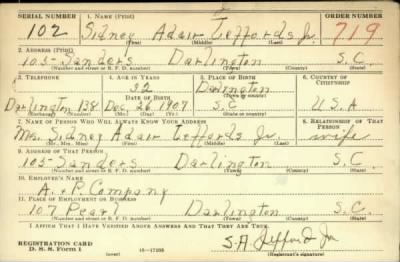 SERIAL NUMBER 1. NAME (Print) ORDER NUMBER
102 Sidney Adair Jeffords Jr. 719
(First) (Middle) (Last)
2. ADDRESS (Print)
105-Sanders Darlington S.C.
(Number and street or R. F. D. number) (Town) (County) (State)
3. TELEPHONE 4. AGE IN YEARS 5. PLACE OF BIRTH 6. COUNTRY OF CITIZENSHIP
32 Darlington
(Town or county)
DATE OF BIRTH
Darlington 138 Dec. 26 1907 S.C. U.S.A
(Exchange) (Number) (Mo.) (Day) (Yr.) (State or country)
7. NAME OF PERSON WHO WILL ALWAYS KNOW YOUR ADDRESS 8. RELATIONSHIP OF THAT PERSON
Mrs. Sidney Adair Jeffords Jr. wife
(Mr., Mrs., Miss) (First) (Middle) (Last)
9. ADDRESS OF THAT PERSON
105-Sanders Darlington S.C.
(Number and street or R. F. D. number) (Town) (County) (State)
10. EMPLOYER'S NAME
A. + P. Company
11. PLACE OF EMPLOYMENT OR BUSINESS
107 Pearl Darlington S.C.
(Number and street or R. F. D. number) (Town) (County) (State)
I AFFIRM THAT I HAVE VERIFIED ABOVE ANSWERS AND THAT THEY ARE TRUE.
S.A. Jeffords Jr
REGISTRATION CARD
D. S. S. Form 1 (over) 16—17105 (Registrant's signature)